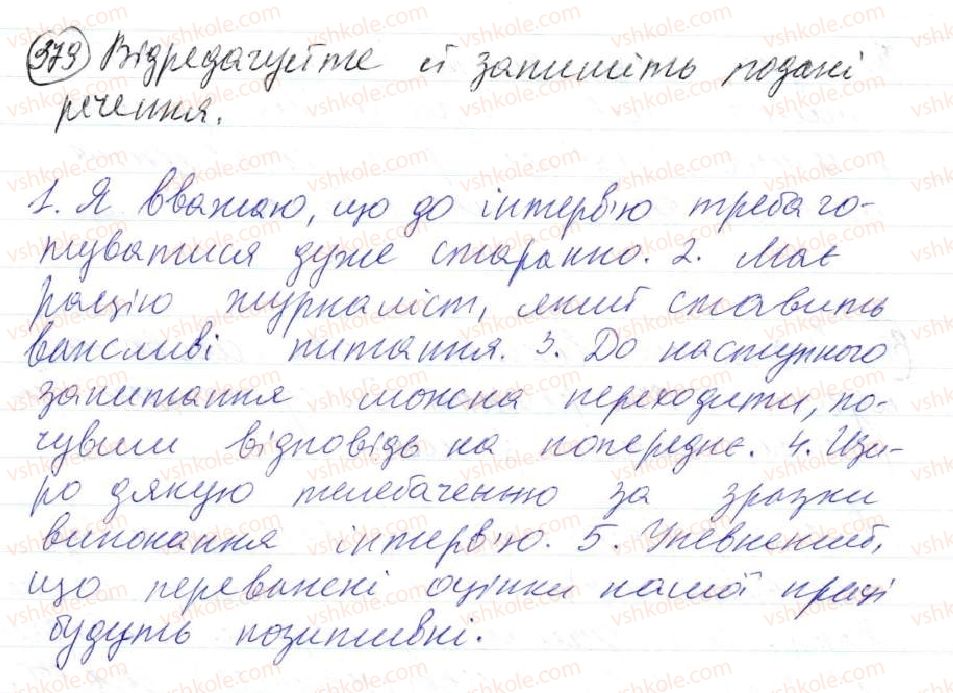 379 Відредагуйте й запишіть подані
речення.
1. Я вважаю, що до інтерв'ю треба го-
туватися дуже старанно. 2. Має
рацію журналіст, який ставить
важливі питання. 3. До наступного
запитання можна переходити, по-
чувши відповідь на попереднє. 4. Щи-
ро дякую телебаченню за зразки
виконання інтерв'ю. 5. Упевнений,
що переважні оцінки нашої праці
будуть позитивні.